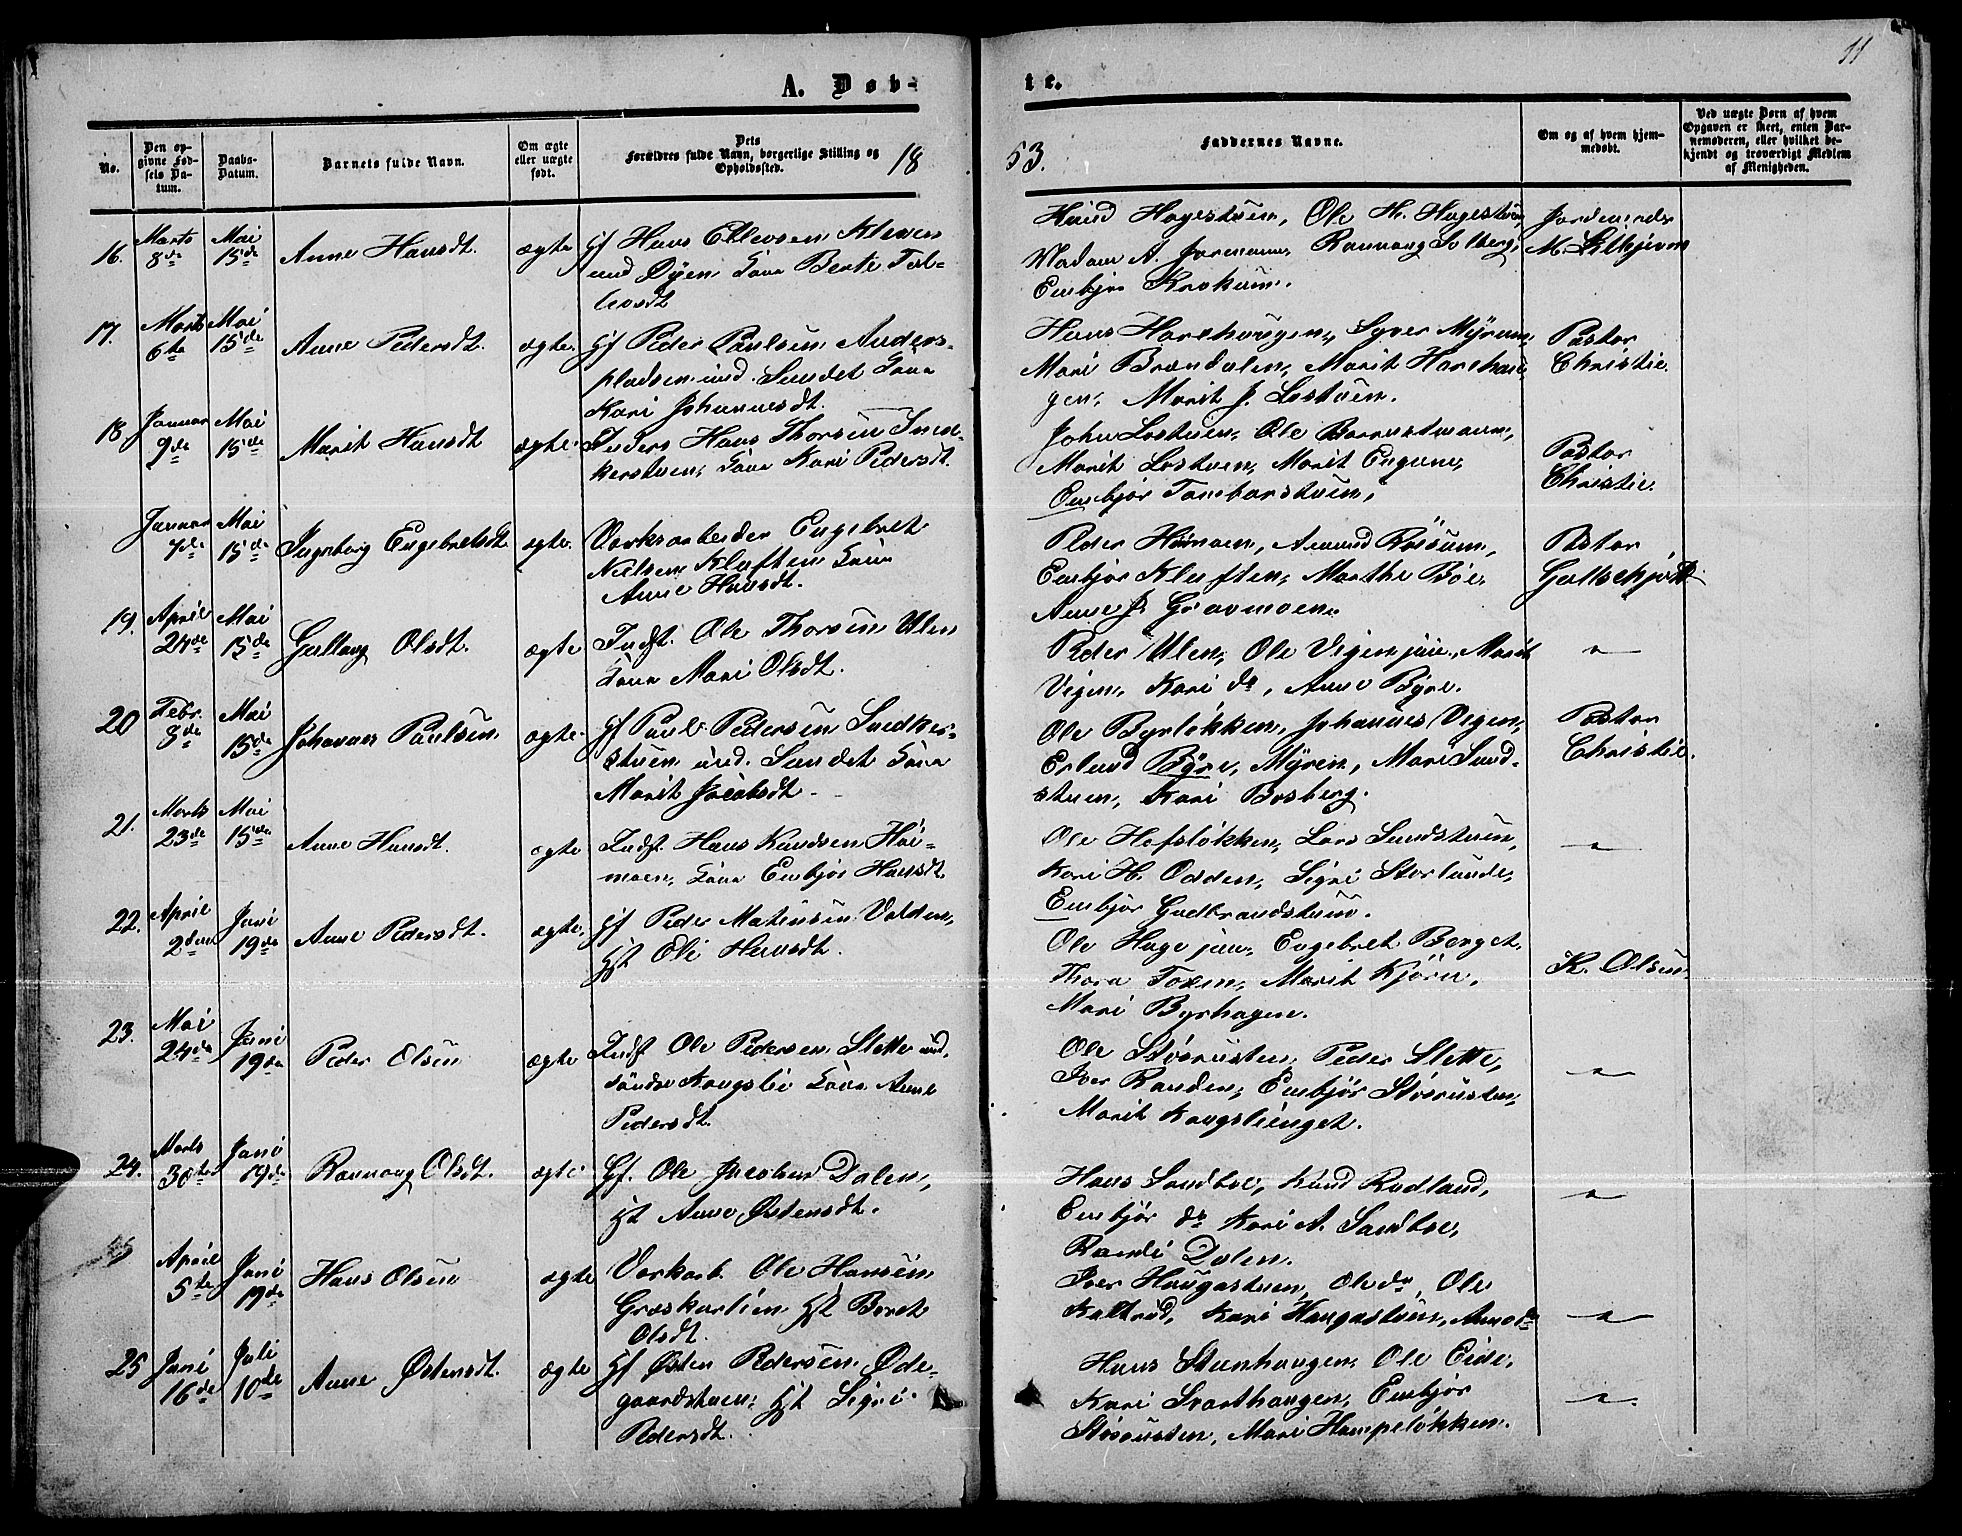 11
A. Døb-
te.
No.
Den opgivne Fødsels Datum.
Daabs-Datum.
Barnets fulde Navn.
Om ægte eller uægte født.
Dets Forældres fulde Navn, borgerlige Stilling og Opholdssted.
18
53.
Faddernes Navne.
Om og af hvem hjemmedøbt.
Ved uægte Børn af hvem Opgaven er skeet, enten Barnemoderen, eller hvilket bekjendt og troværdigt Medlem af Menigheden.
16. Marts 8de Mai 15de Anne Hansdt. ægte Gf Hans Ellevsen Kleven
und Øyen Kone Berte Tol-
levsdt
Knud Hagestuen, Ole H. Hagestuen,
Madam A. Jormann, Rannaug Solberg,
Embjør Krokum.
Jordemoder
M.
17. Marts 6te Mai 15de Anne Pedersdt. ægte. Gf Peder Paulsen Anders-
pladsen und. Sundet Kone
Kari Johannesdt.
Hans Harehaugen, Syver Myrum,
Mari Brændalen, Marit Harehau-
gen, Marit J. Lostuen.
Pastor
Christie
18 Januar 9de Mai 15de Marit Hansdt ægte. Inders Hans Thorsen Sned-
kerstuen, Kone Kari Pedersdt.
John Lostuen, Ole
Marit Lostuen, Marit Engene,
Embjør Tomberstuen,
Pastor
Christie.
Januar 7de Mai 15de Ingeborg Engebretsdt ægte. Værksarbeider Engebret
Nielsen Kluften Kone
Anne Hansdt.
Peder Høimoen, Amund Røssum,
Embjør Kluften, Marthe Bøe,
Anne J. Gravmoen.
Pastor
19. April 24de Mai 15de Gullaug Olsdt. ægte Indst. Ole Thorsen Ulen
Kone Mari Olsdt.
Peder Ulen, Ole Vigenjue, Marit
Vigen, Kari do, Anne Byre.
"
20 Febr. 8de Mai 15de Johannes Paulsen ægte. Gf Paul Pedersen Snedker-
stuen und. Sundet Kone
Marit Jacobsdt.
Ole Byrløkken, Johannes Vigen,
Erland Byre, Myren, Mari Sund-
stuen, Kari Bosberg.
Pastor
Christie.
21. Marts 23de Mai 15de Anne Hansdt. ægte Indst. Hans Knudsen Høi-
moen, Kone Embjør Hansdt.
Ole Hofsløkken, Lars Sundstuen,
Kari H. Odden, Sigri Storlunde,
Embjør Gudbrandstuen.
"
22. April 2den Juni 19de Anne Pedersdt. ægte. Gf Peder Matiasen Volden,
Hst Eli Hansdt.
Ole Hagejuu, Engebret Berget,
Thora Toxen, Marit Kjørn,
Mari Byrhagen.
K. Olsen
23. Mai 24de Juni 19de Peder Olsen ægte Indst Ole Pedersen Slette und.
søndre Kongsli Kone Anne
Pedersdt.
Ole Støsrusten, Peder Slette,
Iver Randen, Embjør Støsrusten,
Marit Kongslienget.
"
24. Marts 30te Juni 19de Rannaug Olsdt. ægte Gf. Ole Jacobsen Dalen,
Hst Anne Østensdt.
Hans Sandboe, Knud Rudland,
Embjør do Kari A. Sandboe,
Randi Dalen.
"
April 5te Juni 19de Hans Olsen ægte Værkarb. Ole Hansen
Graskarlien Hst Beret
Olsdt.
Iver Haugastuen, Ole do, Ole
Kaltrud, Kari Haugastuen, Anne do
"
25 Juni 16de Juli 10de Anne Østensdt. ægte Gf Østen Pedersen Øde-
gaardstuen, Hst Sigri
Pedersdt.
Hans Stenhaugen, Ole Eide,
Kari Svarthaugen, Embjør
Støsrusten, Mari Hampeløkken.
"